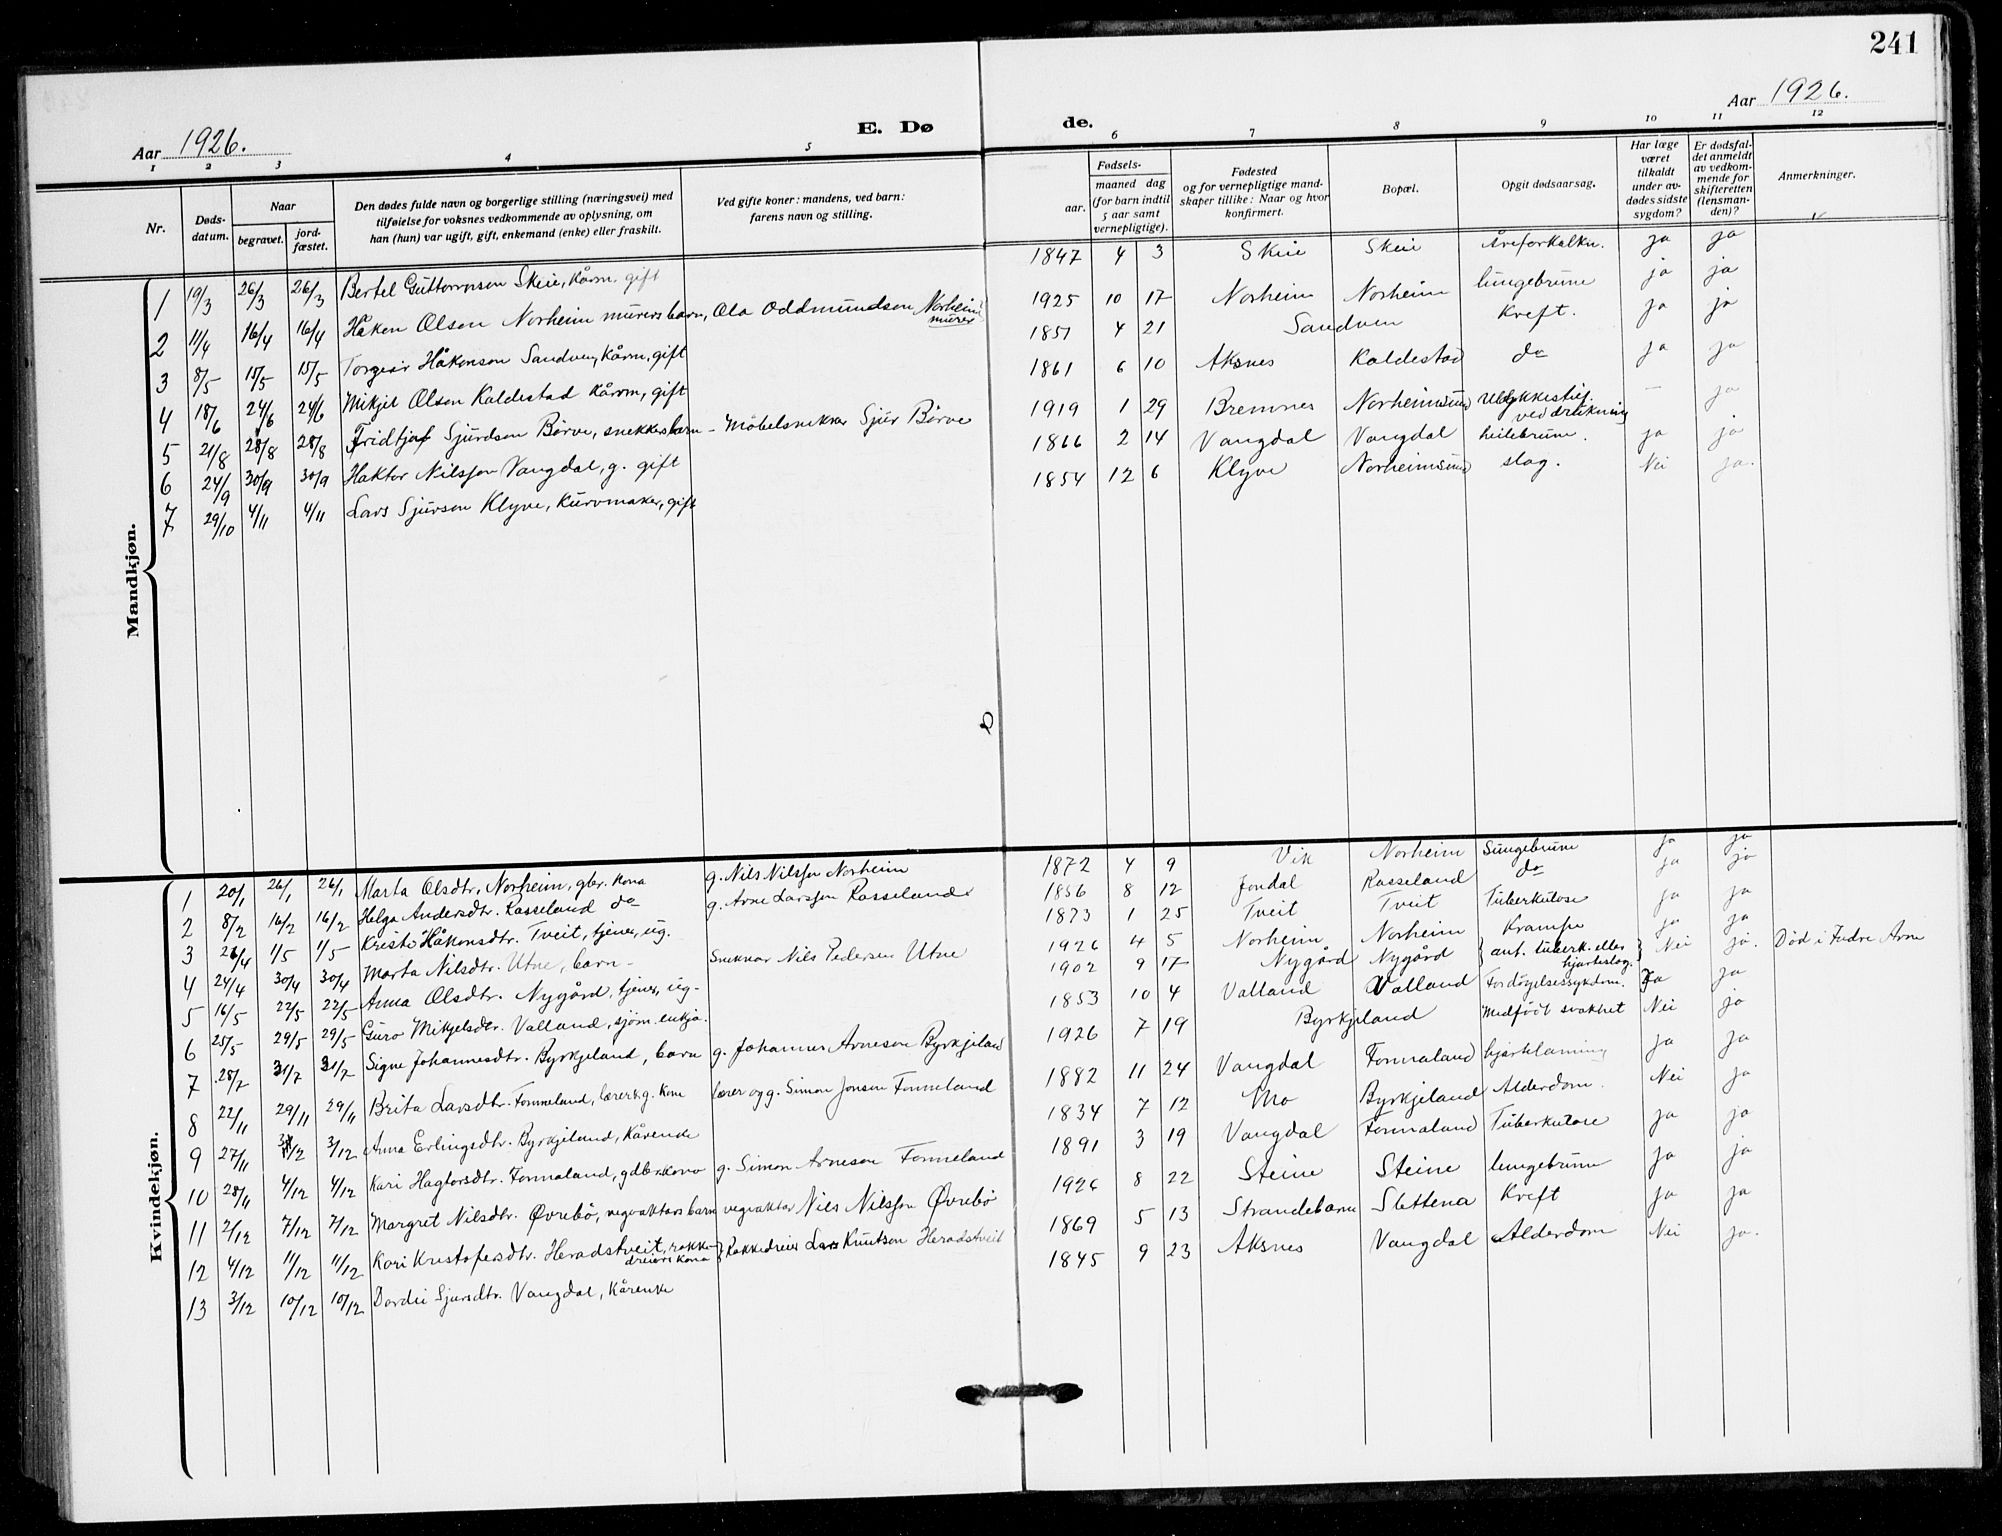 241
Aar 1926.
E. Dø de.
Aar 1926.
1 2 3 4 5 6 7 8 9 10 11 12
Nr.
Døds-datum.
Naar
begravet.
jord-fæstet.
Den dødes fulde navn og borgerlige stilling (næringsvei) med
tilføielse for voksnes vedkommende av oplysning, om
han (hun) var ugift, gift, enkemand (enke) eller fraskilt.
Ved gifte koner: mandens, ved barn:
farens navn og stilling.
Fødsels-
aar.
maaned dag
(for barn indtil
5 aar samt
vernepligtige).
Fødested
og for vernepligtige mand-
skaper tillike: Naar og hvor
konfirmert.
Bopæl.
Opgit dødsaarsag.
Har læge
været
tilkaldt
under av-
dødes sidste
sygdom?
Er dødsfal-
det anmeldt
av vedkom-
mende for
skifteretten
(lensman-
den)?
Anmerkninger.
Mandkjøn.
1 19/3 26/3 26/3 Bertel Guttormson Skeie, Kårm. gift 1847 4 3 Skeie Skeie Åreforkalkn. ja ja
2 11/4 16/4 16/4 Håkon Olson Norheim murers barn, Ola Oddmundson Norheim murer 1925 10 17 Norheim Norheim lungebrune ja ja
3 8/5 15/5 15/5 Torgeir Håkonson Sandven, Kårm, gift 1851 4 21 Sandven Kreft. ja ja
4 18/6 24/6 24/6 Mikjel Olson Kaldestad Kårm, gift 1861 6 10 Aksnes Kaldestad do ja ja
5 21/8 28/8 28/8 Fridtjof Sjurdson Börve, snekkers barn - Möbelsnekkar Sjur Börve 1919 1 29 Bremnes Norheimsund Ulykkestilf. ved drukning — ja
6 24/9 30/9 30/9 Haktor Nilsson Vangdal, g. gift 1866 2 14 Vangdal Vangdal heilebrune. ja ja
7 29/10 4/11 4/11 Lars Sjurson Klyve, Kurvmaker, gift 1854 12 6 Klyve Norheimsund slag. Nei ja.
Kvindekjøn.
1 20/1 26/1 26/1 Marta Olsdtr. Norheim, gbr. kona g. Nils Nilsson Norheim 1872 4 9 Vik Norheim Lungebrune ja ja
2 8/2 16/2 16/2 Helga Andersdtr. Rasseland do g. Arne Larsson Rasseland 1856 8 12 Jondal Rasseland do ja ja
3 26/4 1/5 1/5 Kristi Håkonsdtr. Tveit, tjener, ug. 1873 1 25 Tveit Tveit Tuberkulose ja ja
4 24/4 30/4 30/4 Marta Nilsdtr. Utne, barn - Snekkar Nils Pedersen Utne 1926 4 5 Norheim Norheim Krampe ja ja
5 16/5 22/5 22/5 Anna Olsdtr. Nygård, tjener, ug. 1902 9 17 Nygård Nygård ant. tuberk. eller hjarteslag. Nei ja. Död i Indre Arna
6 25/5 29/5 29/5 Guro Mikjelsdtr. Valland, sjöm. enkja. 1853 10 4 Valland Valland Fordöyelsessykdom. Ja ja
7 28/7 31/7 31/7 Signe Johannesdtr. Byrkjeland, barn g. Johannes Arneson Byrkjeland 1926 7 19 Byrkjeland Medfödt svakhet Nei ja
8 22/11 29/11 29/11 Brita Larsdtr. Fonneland, lærer & g. kone lærer og g. Simon Jonson Fonneland 1882 11 24 Vangdal Fonnaland hjartelaming ja ja
9 27/11 3/12 3/12 Anna Erlingsdtr. Byrkjeland, Kårenke 1834 7 12 Mo Byrkjeland Alderdom. Nei ja
10 28/11 4/12 4/12 Kari Hagtorsdtr. Fonnaland, gdbr.kona g. Simon Arneson Fonneland 1891 3 19 Vangdal Fonnaland Tuberkulose ja ja
11 2/12 7/12 7/12 Margret Nilsdtr. Øvrebö, vegvaktars barn vegvaktar Nils Nilsson Øvrebö 1926 8 22 Steine Steine lungebrune ja ja
12 4/12 11/12 11/12 Kari Kristofersdtr. Heradstveit, rokke-dreiers kona Rokkedreier Lars Knutson Heradstveit 1869 5 13 Strandebarm Slettena Kreft ja ja
13 3/12 10/12 10/12 Dordei Sjursdtr. Vangdal, Kårenke 1845 9 23 Aksnes Vangdal Alderdom Nei ja.